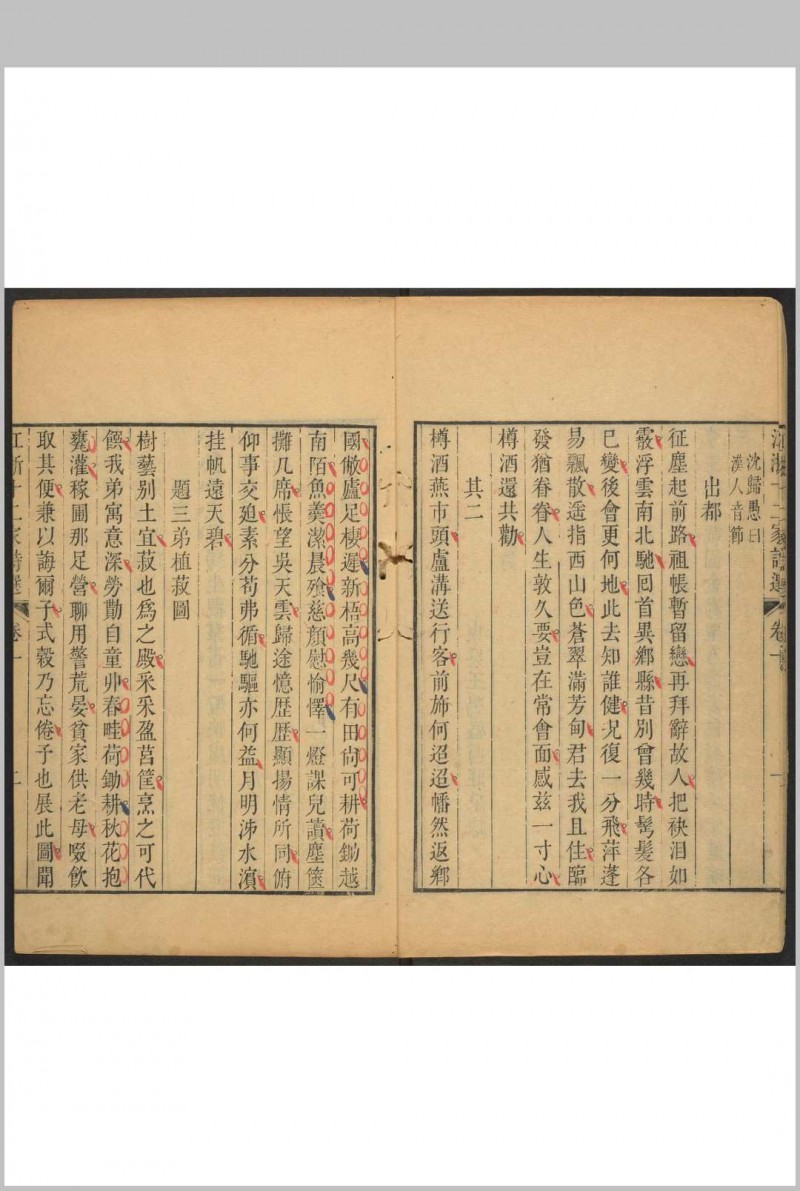 沈歸愚曰
漢人音節
出都
征塵起前路祖帳暫留戀再拜辭故人把袂泪如
霰浮雲南北馳囘首異鄉縣昔別曾幾時髩髮各
已變後會更何地此去知誰健况復一分飛萍蓬
易飄散遥指西山色蒼翠滿芳甸君去我且住臨
發猶眷眷人生敦久要豈在常會面感兹一寸心
樽酒還共勸
其二
樽酒燕市頭盧溝送行客前斾何迢迢幡然返鄉
國敝廬足棲遲新梧高幾尺有田尙可耕荷鋤越
南陌魚羹潔晨飱慈顏慰愉懌一燈課兒讀塵篋
攤几席悵望吳天雲歸途憶歷歷顯揚情所同俯
仰事交廹素分苟弗循馳驅亦何益月明沛水濱
挂帆遠天碧
題三弟植菽圖
樹藝别土宜菽也爲之殿采采盈莒筐烹之可代
饌我弟寓意深勞勩自童丱春畦荷鋤耕秋花抱
甕灌稼圃那足營聊用警荒晏貧家供老母啜飲
取其便兼以誨爾子式穀乃忘倦予也展此圖聞
江浙十二家詩選 卷一 二